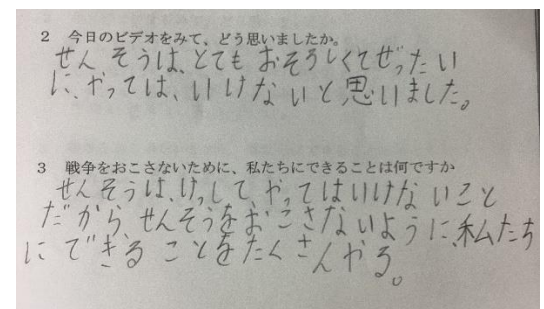 2 今日のビデオをみて、どう思いましたか。
せんそうは、とても おそろしくてぜったい
に、やっては、いけないと思いました。
3 戦争をおこさないために、私たちにできることは何ですか
せんそうは、けっして、やってはいけないこと
だから、せんそうをおこさないように、私たち
にできることをたくさんやる。